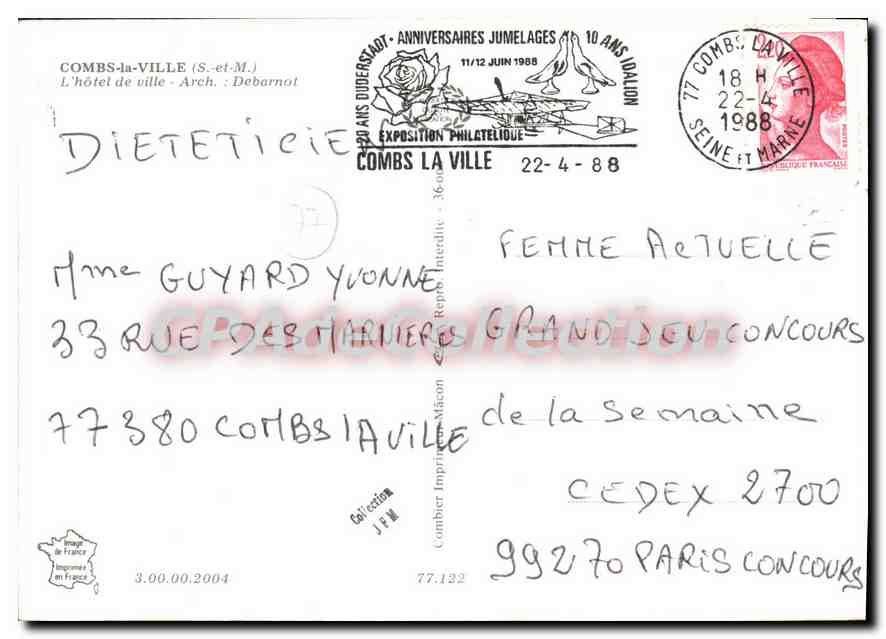 COMBS-la-VILLE (S.-et-M.)
L'hôtel de ville - Arch. : Debarnot
20 ANS DUDERSTADT - ANNIVERSAIRES JUMELAGES 10 ANS IDALION
11/12 JUIN 1988
EXPOSITION PHILATELIQUE
COMBS LA VILLE 22-4-88
77 COMBS LA VILLE
18 H
22-4
1988
SEINE ET MARNE
POSTES
REPUBLIQUE FRANÇAISE
DIETETICIEN
77
Mme GUYARD YVONNE
33 RUE DES MARNIERES
77380 COMBS LA VILLE
FEMME ACTUELLE
GRAND JEU CONCOURS
de la semaine
CEDEX 2700
99270 PARIS CONCOURS
CPAdeCollection
Combier Imprimeur Mâcon
Repro. Interdite - 36-00
Collection
JFM
Image
de France
Imprimée
en France
3.00.00.2004
77.122